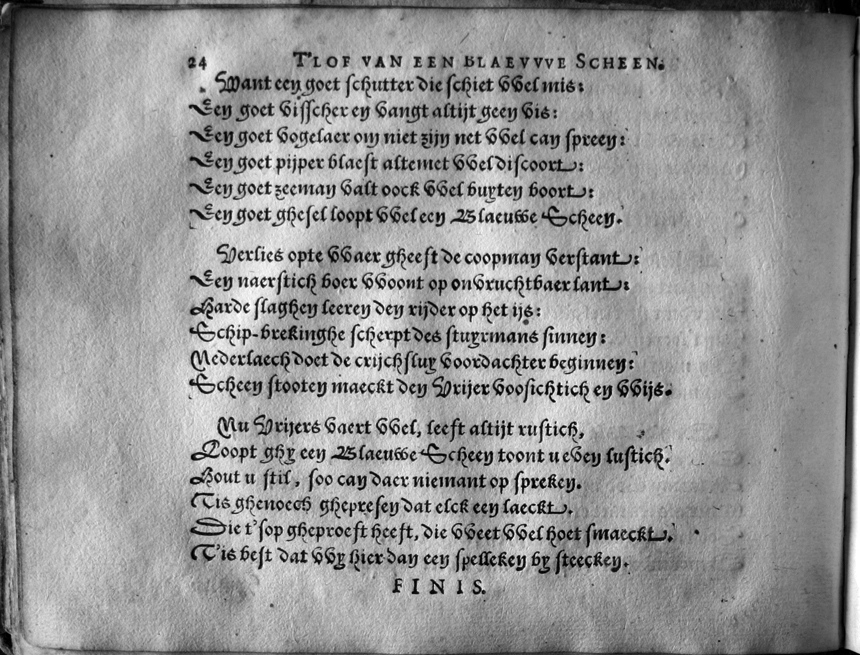 24 T'LOF VAN EEN BLAEVVVE SCHEEN.
Want een goet schutter die schiet wel mis:
Een goet visscher en vangt altijt geen vis:
Een goet vogelaer om niet zijn net wel can spreen:
Een goet pijper blaest altemet wel discoort:
Een goet zeeman valt oock wel buyten boort:
Een goet ghesel loopt wel een Blaeuwe Scheen.
Verlies opte waer gheeft de coopman verstant:
Een naerstich boer woont op onvruchtbaer lant:
Harde slaghen leeren den rijder op het ijs:
Schip-brekinghe scherpt des stuyrmans sinnen:
Nederlaech doet de crijchsluy voordachter beginnen:
Scheen stooten maeckt den Vrijer voosichtich en wijs.
Nu Vrijers vaert wel, leeft altijt rustich,
Loopt ghy een Blaeuwe Scheen toont u even lustich.
Hout u stil, soo can daer niemant op spreken.
Tis ghenoech ghepresen dat elck een laeckt.
Die t'sop gheproeft heeft, die weet wel hoet smaeckt.
T'is best dat wy hier dan een spelleken by steecken.
FINIS.